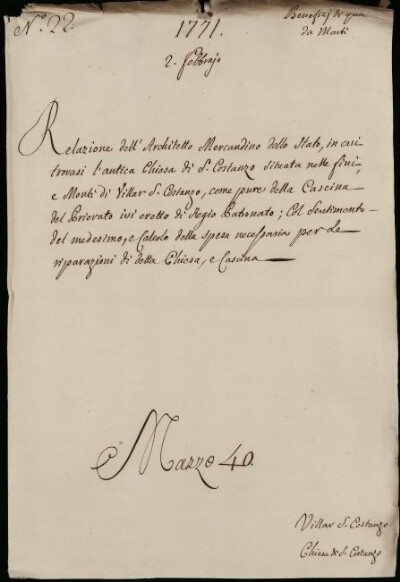 N.° 22.
1771.
Benefizj di qua
da Monti
2. Febbrajo
Relazione dell' Architetto Mercandino dello Stato, in cui
trovasi l'antica Chiesa di S. Costanzo situata nelle fini,
e Monti di Villar S. Costanzo, come pure della Cascina
del Priorato ivi eretto di Regio Patronato; Col Sentimento
del medesimo, e Calcolo della spesa necessaria per le
riparazioni di detta Chiesa, e Cascina
Mazzo 40.
Villar S. Costanzo
Chiesa di S. Costanzo